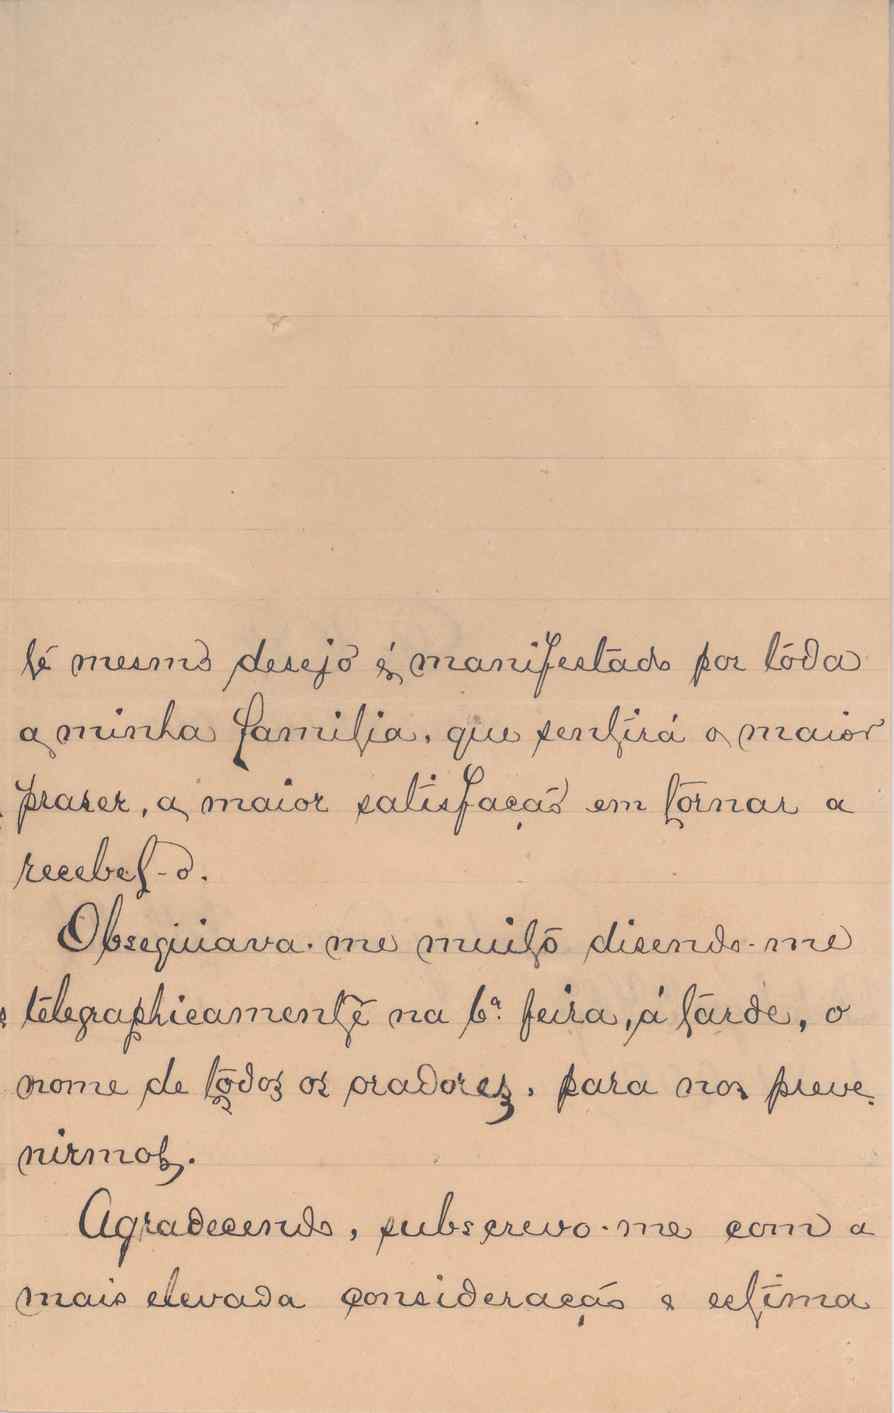 té mesmo desejo é manifestado por tôda
a minha familia, que sentirá o maior
praser, a maior satisfação em tornar a
recebel-o.
Obsequiava-me muito disendo-me
telegraphicamente na 6ª feira, á tarde, o
nome de todos os oradores, para nos preve-
nirmos.
Agradecendo, subscrevo-me com a
mais elevada consideração e estima